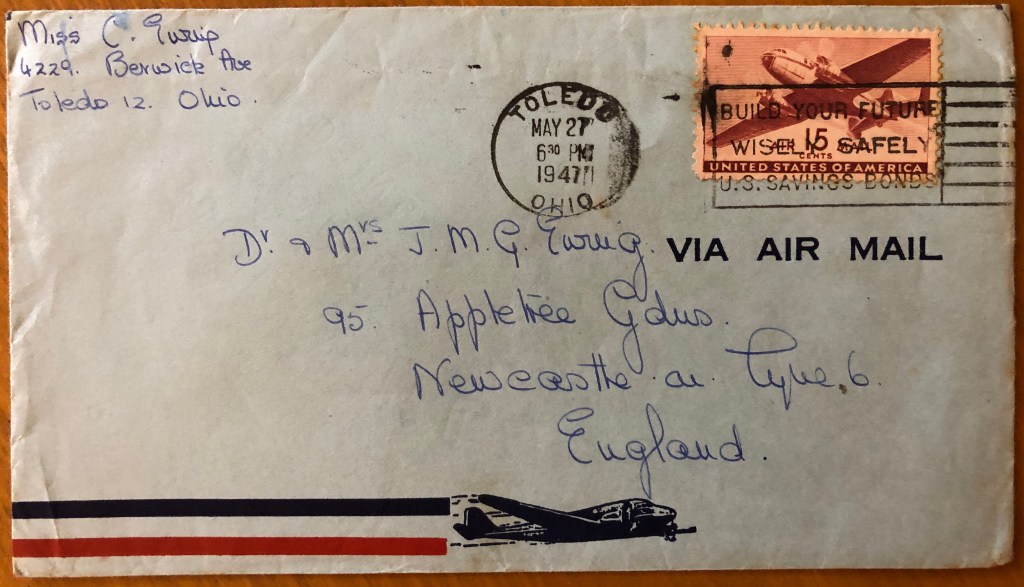 Miss C. Ewing
4229. Berwick Ave
Toledo 12. Ohio.
TOLEDO
MAY 27
6 30 PM
1947
OHIO
BUILD YOUR FUTURE
WISELY SAFELY
U.S. SAVINGS BONDS
AIR MAIL
15
CENTS
UNITED STATES OF AMERICA
Dr. & Mrs J. M. G. Ewing.
VIA AIR MAIL
95. Appletree Gdns.
Newcastle on Tyne, 6.
England.